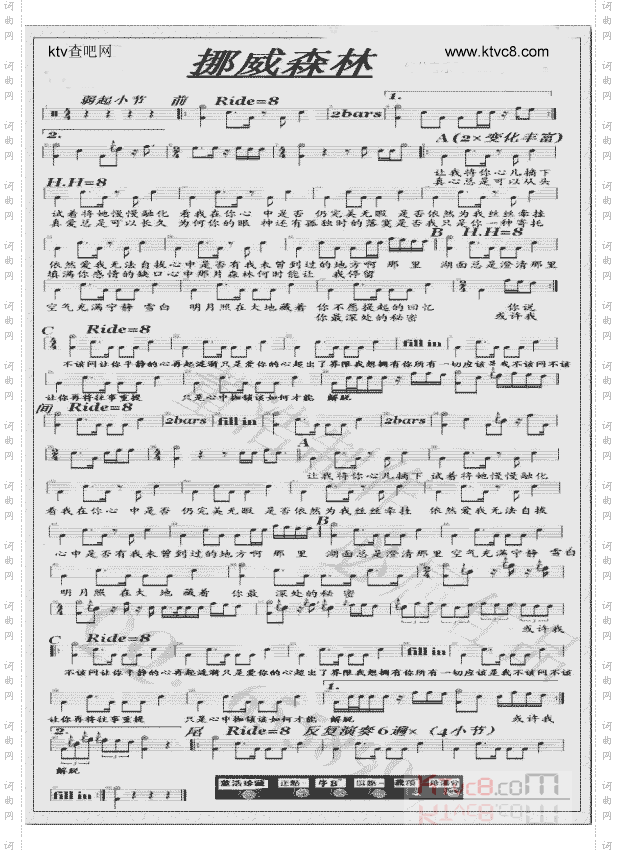 ktv查吧网
www.ktvc8.com
挪威森林
弱起小节 前 Ride=8
2bars
1.
2.
A (2×变化丰富)
让我将你心儿摘下
真心总是可以从头
H.H=8
试着将她慢慢融化 看我在你心 中是否 仍完美无暇 是否依然为我丝丝牵挂
真爱总是可以长久 为何你的眼 神还有孤独时的落寞是否我只是你一种寄托
B H.H=8
依然爱我无法自拔心中是否有我未曾到过的地方啊 那 里 湖面总是澄清那里
填满你感情的缺口心中那片森林何时能让 我停留
空气充满宁静 雪白 明月照在大地藏着 你不愿提起的回忆 你说
你最深处的秘密 或许我
C Ride=8
fill in
不该问让你平静的心再起涟漪只是爱你的心超出了界限我想拥有你所有一切应该是我不该问不该
让你再将往事重提 只是心中枷锁该如何才能 解脱
间 Ride=8
2bars fill in 2bars
A
让我将你心儿摘下 试着将她慢慢融化
看我在你心 中是否 仍完美无暇 是否依然为我丝丝牵挂 依然爱我无法自拔
B
心中是否有我未曾到过的地方啊 那 里 湖面总是澄清那里 空气充满宁静 雪白
明月照 在大 地藏着 你最 深处的秘密
或许我
C Ride=8
fill in
不该问让你平静的心再起涟漪只是爱你的心超出了界限我想拥有你所有一切应该是我不该问不该
1.
让你再将往事重提 只是心中枷锁该如何才能 解脱 或许我
2. 尾 Ride=8 反复演奏6遍×(4小节)
解脱
fill in
ktvc8.com
词曲网